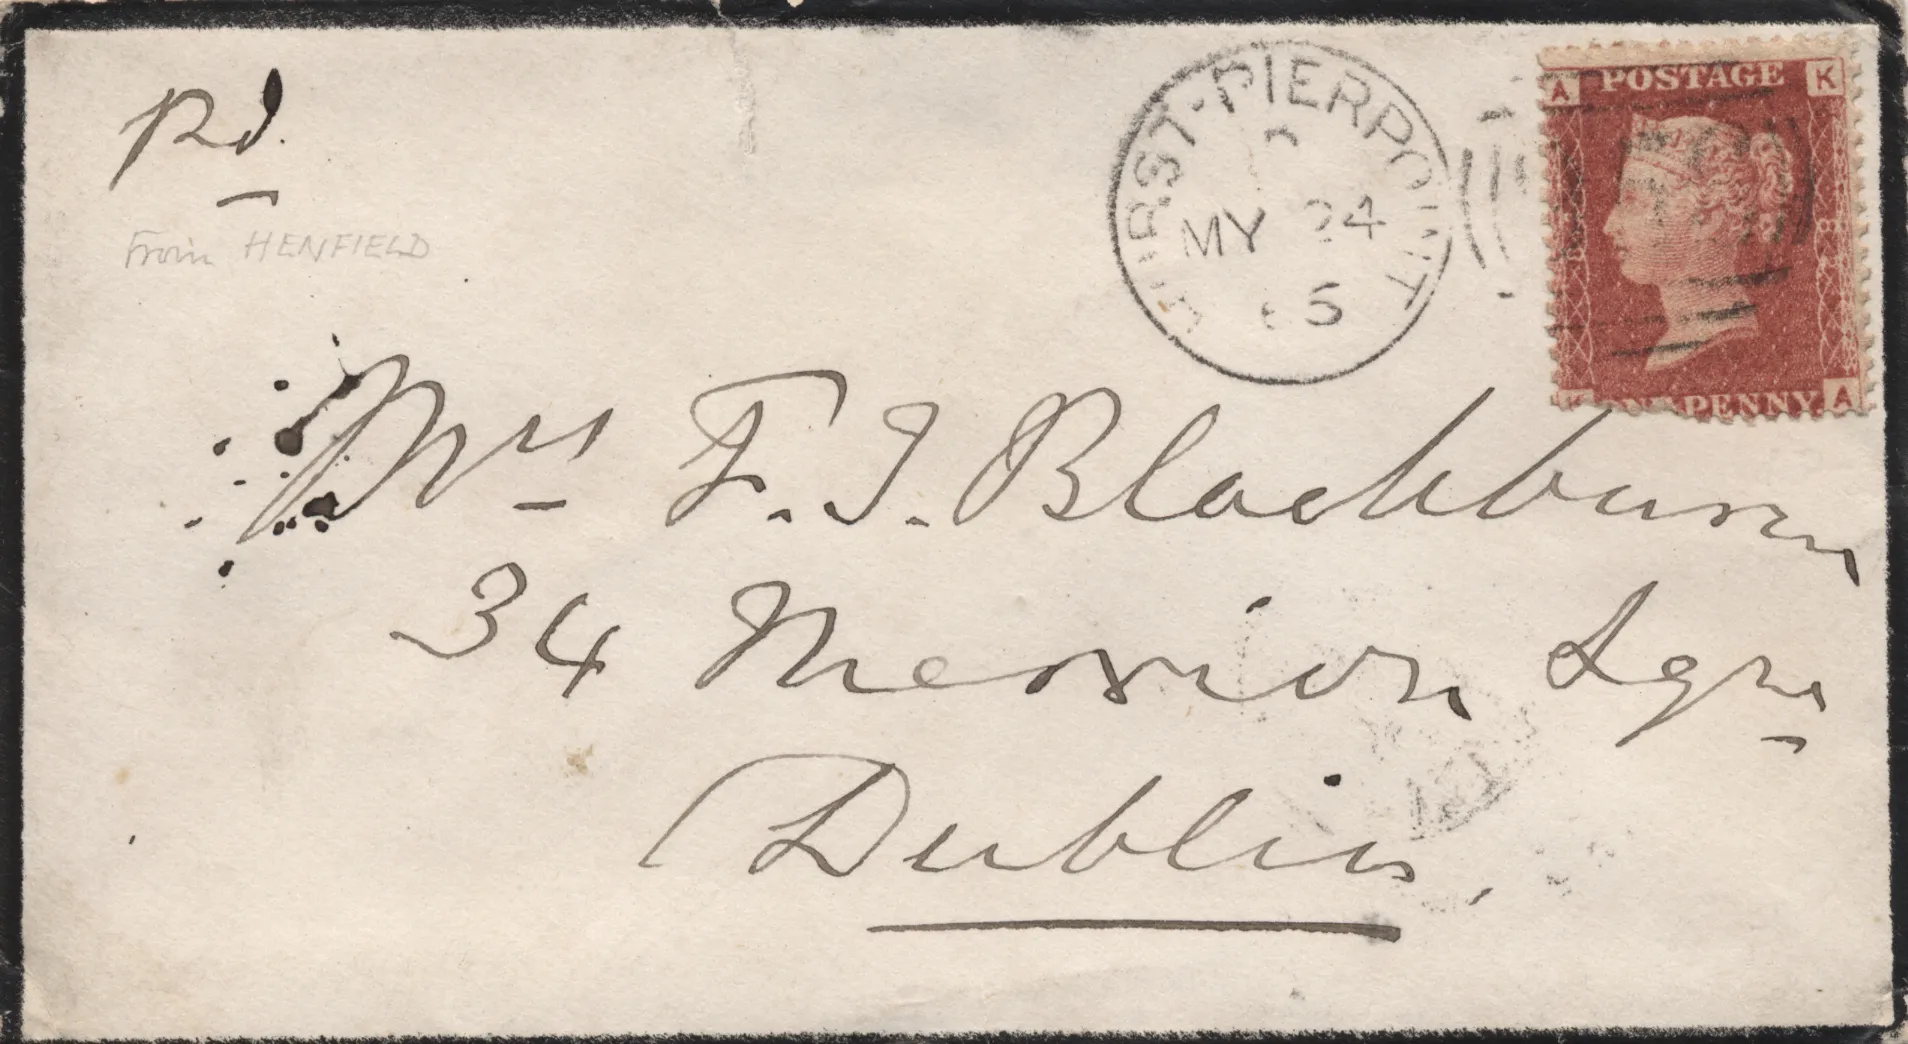 Pd.
From HENFIELD
HURST-PIERPOINT
C
MY 24
65
A POSTAGE K
K ONE PENNY A
Mrs F. J. Blackburn
34 Merrion Sqre
Dublin